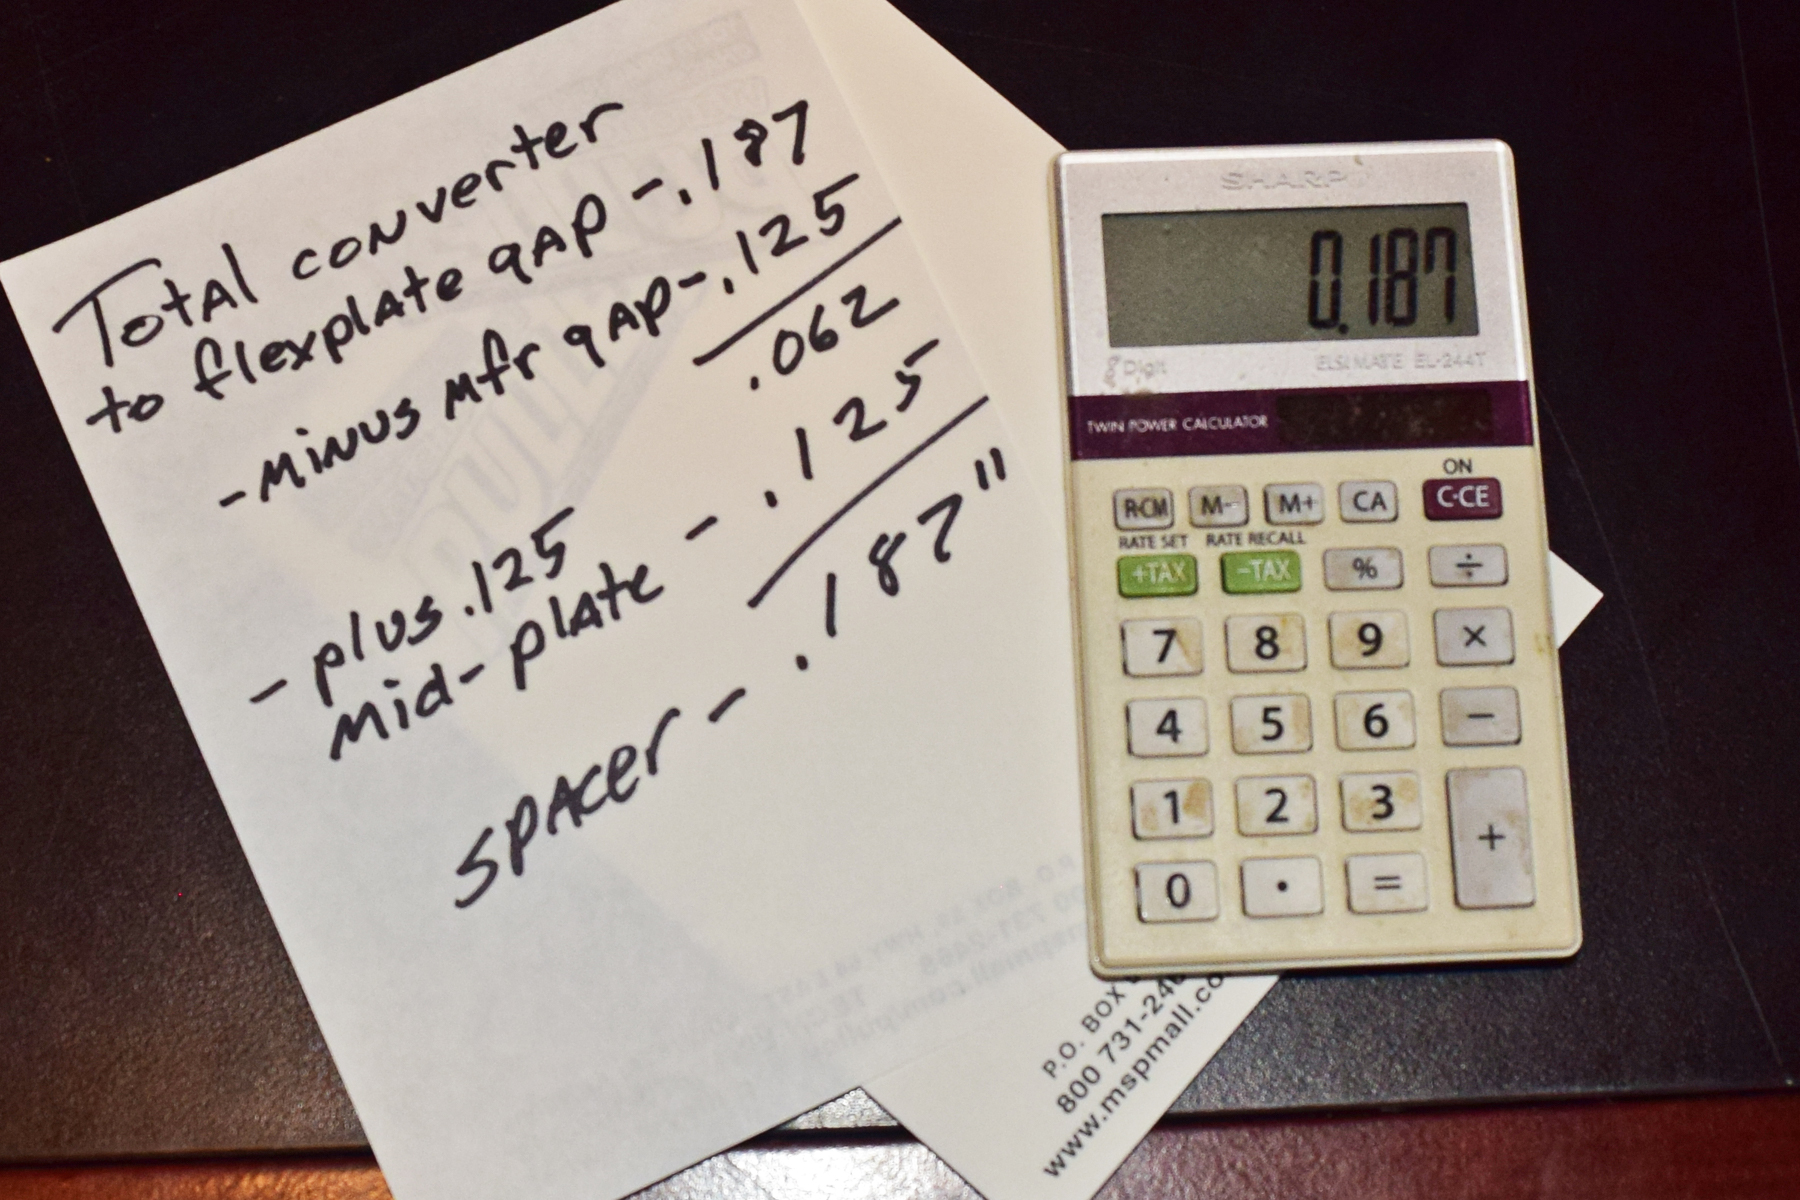 Total converter
to flexplate gap - .187
- minus mfr gap - .125
.062
- plus .125
mid-plate - .125
spacer - .187"
SHARP
0.187
8 Digit ELSI MATE EL-244T
TWIN POWER CALCULATOR
ON
R·CM M- M+ CA C·CE
RATE SET RATE RECALL
+TAX -TAX % ÷
7 8 9 ×
4 5 6 −
1 2 3 +
0 . =
P.O. BOX
800 731-24
www.mspmall.co